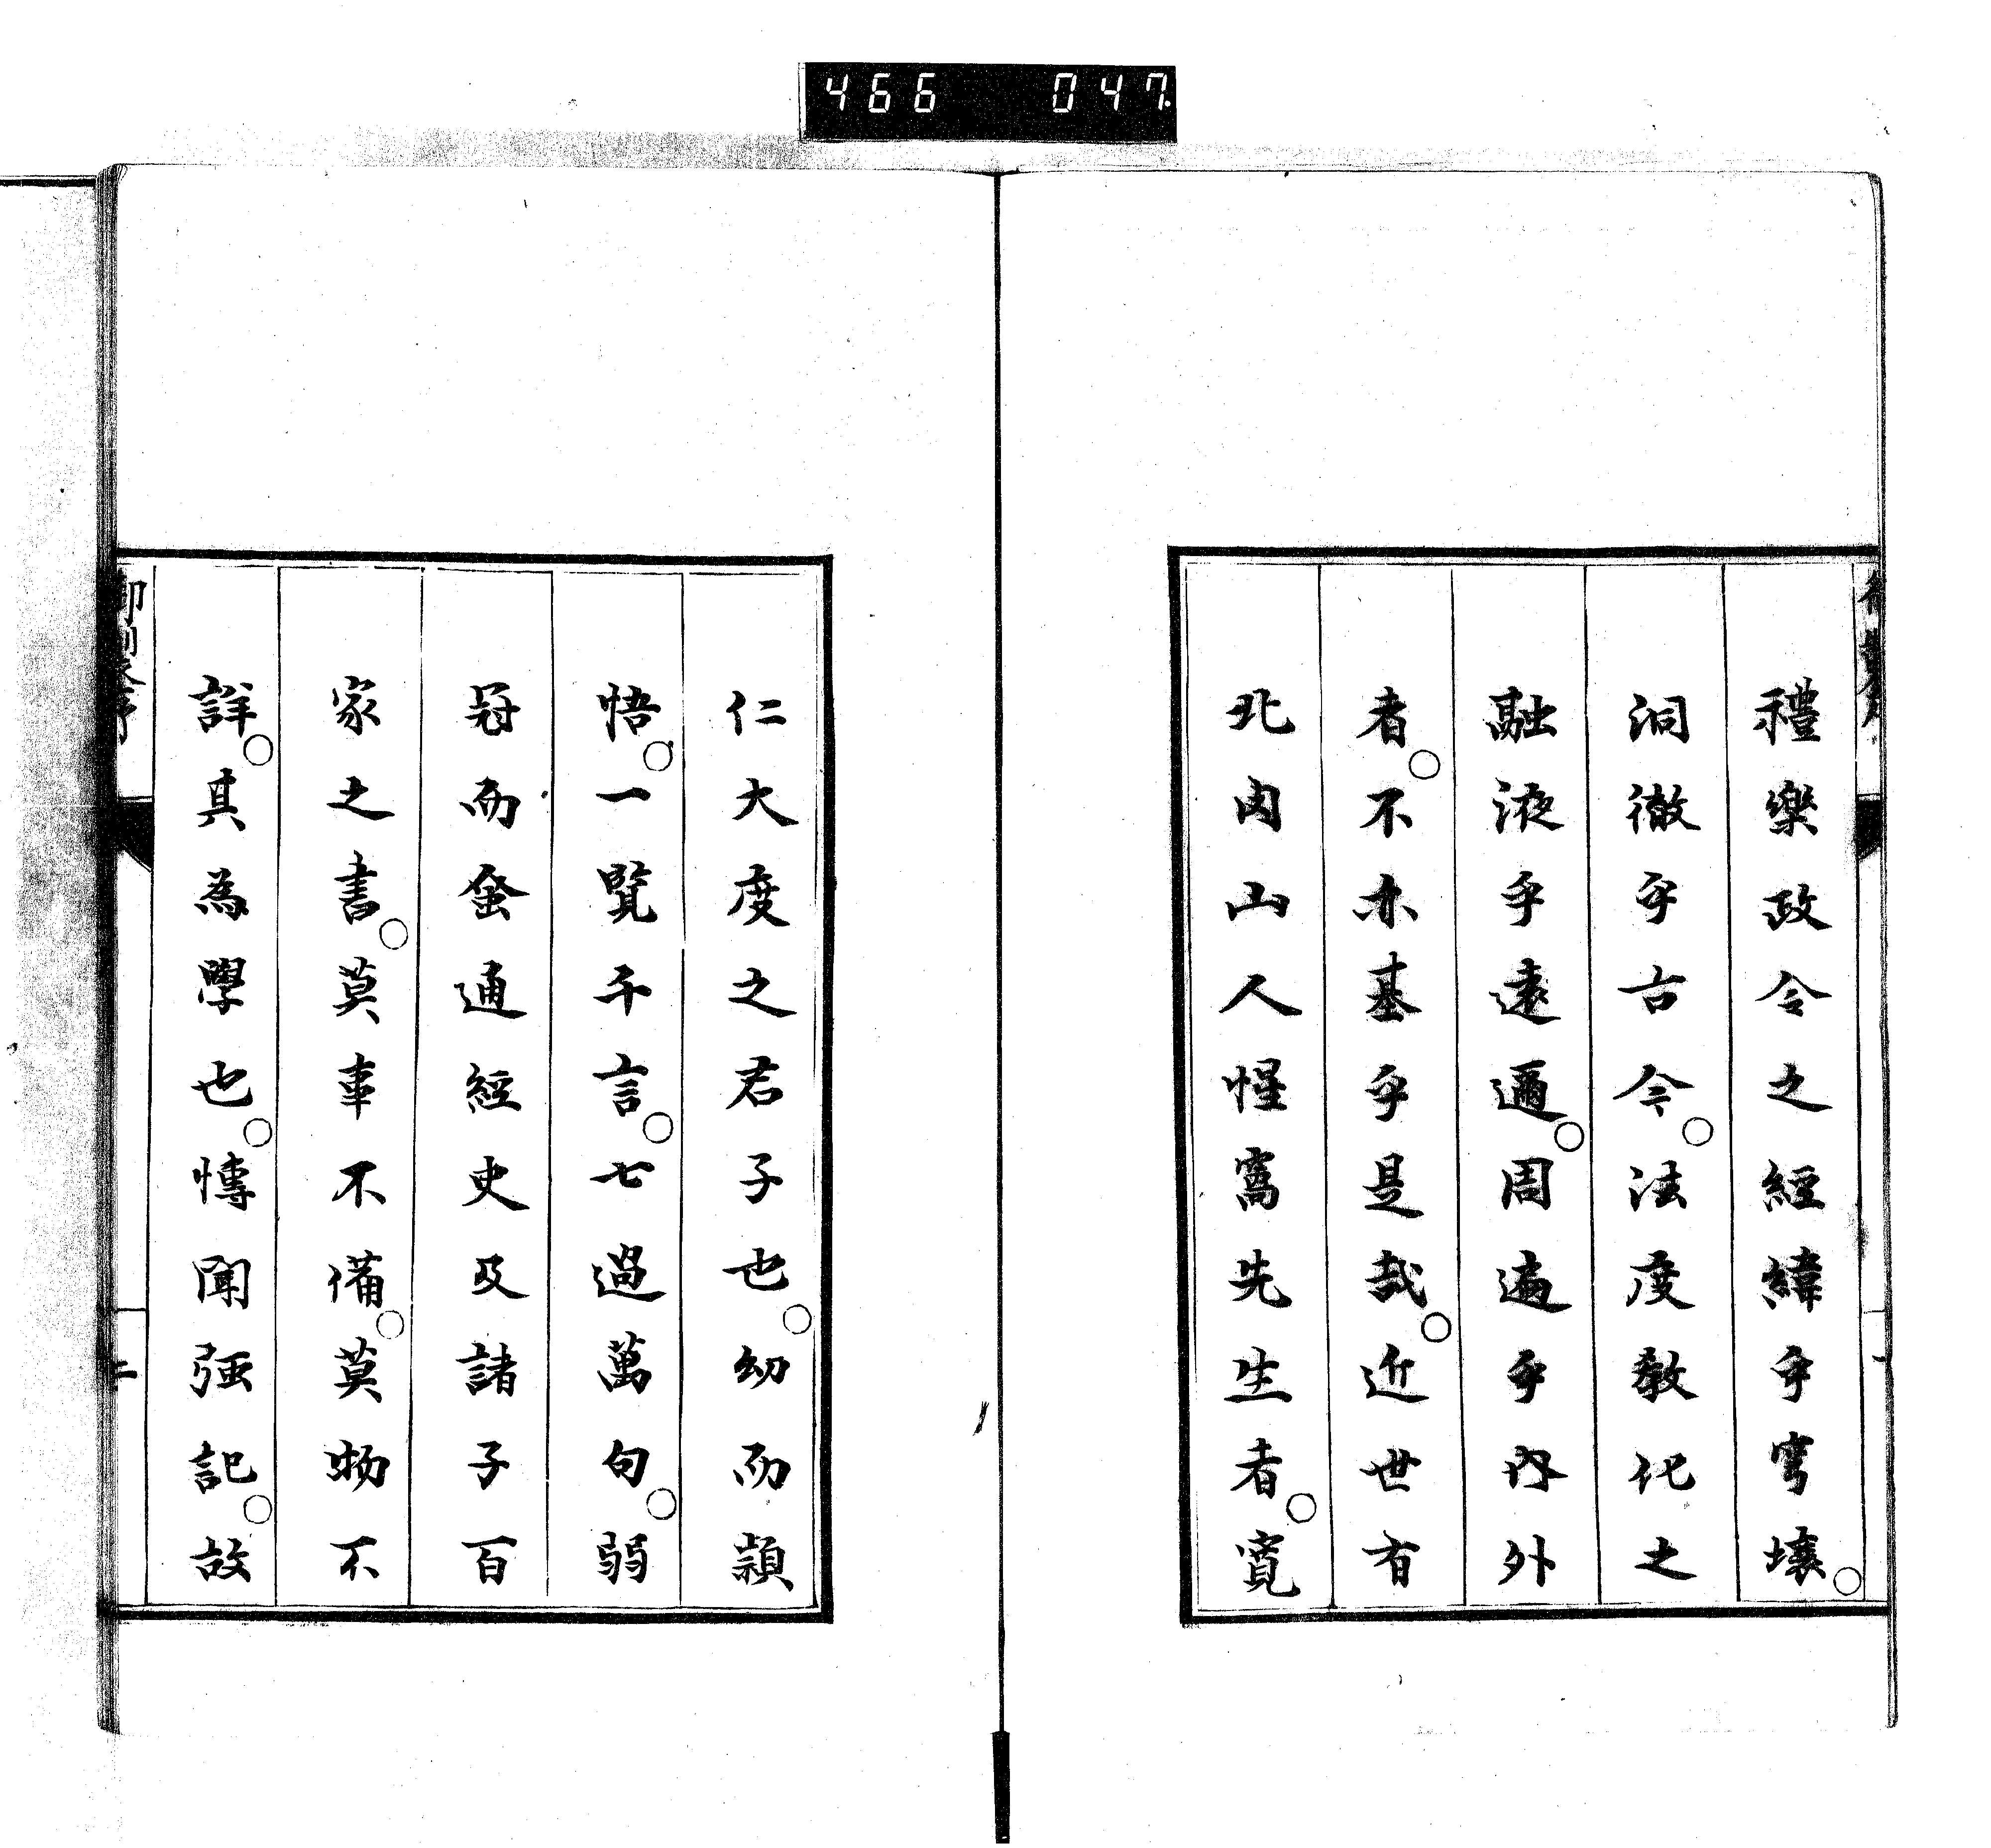 466 047
禮樂政令之經緯乎穹壤○
洞徹乎古今○法度教化之
融液乎遠邇○周遍乎內外
者○不亦基乎是哉○近世有
北肉山人惺窩先生者○寬
仁大度之君子也○幼而穎
悟○一覽千言○七過萬句○弱
冠而兼通經史及諸子百
家之書○莫事不備○莫物不
詳○其為學也○博聞强記○故
二